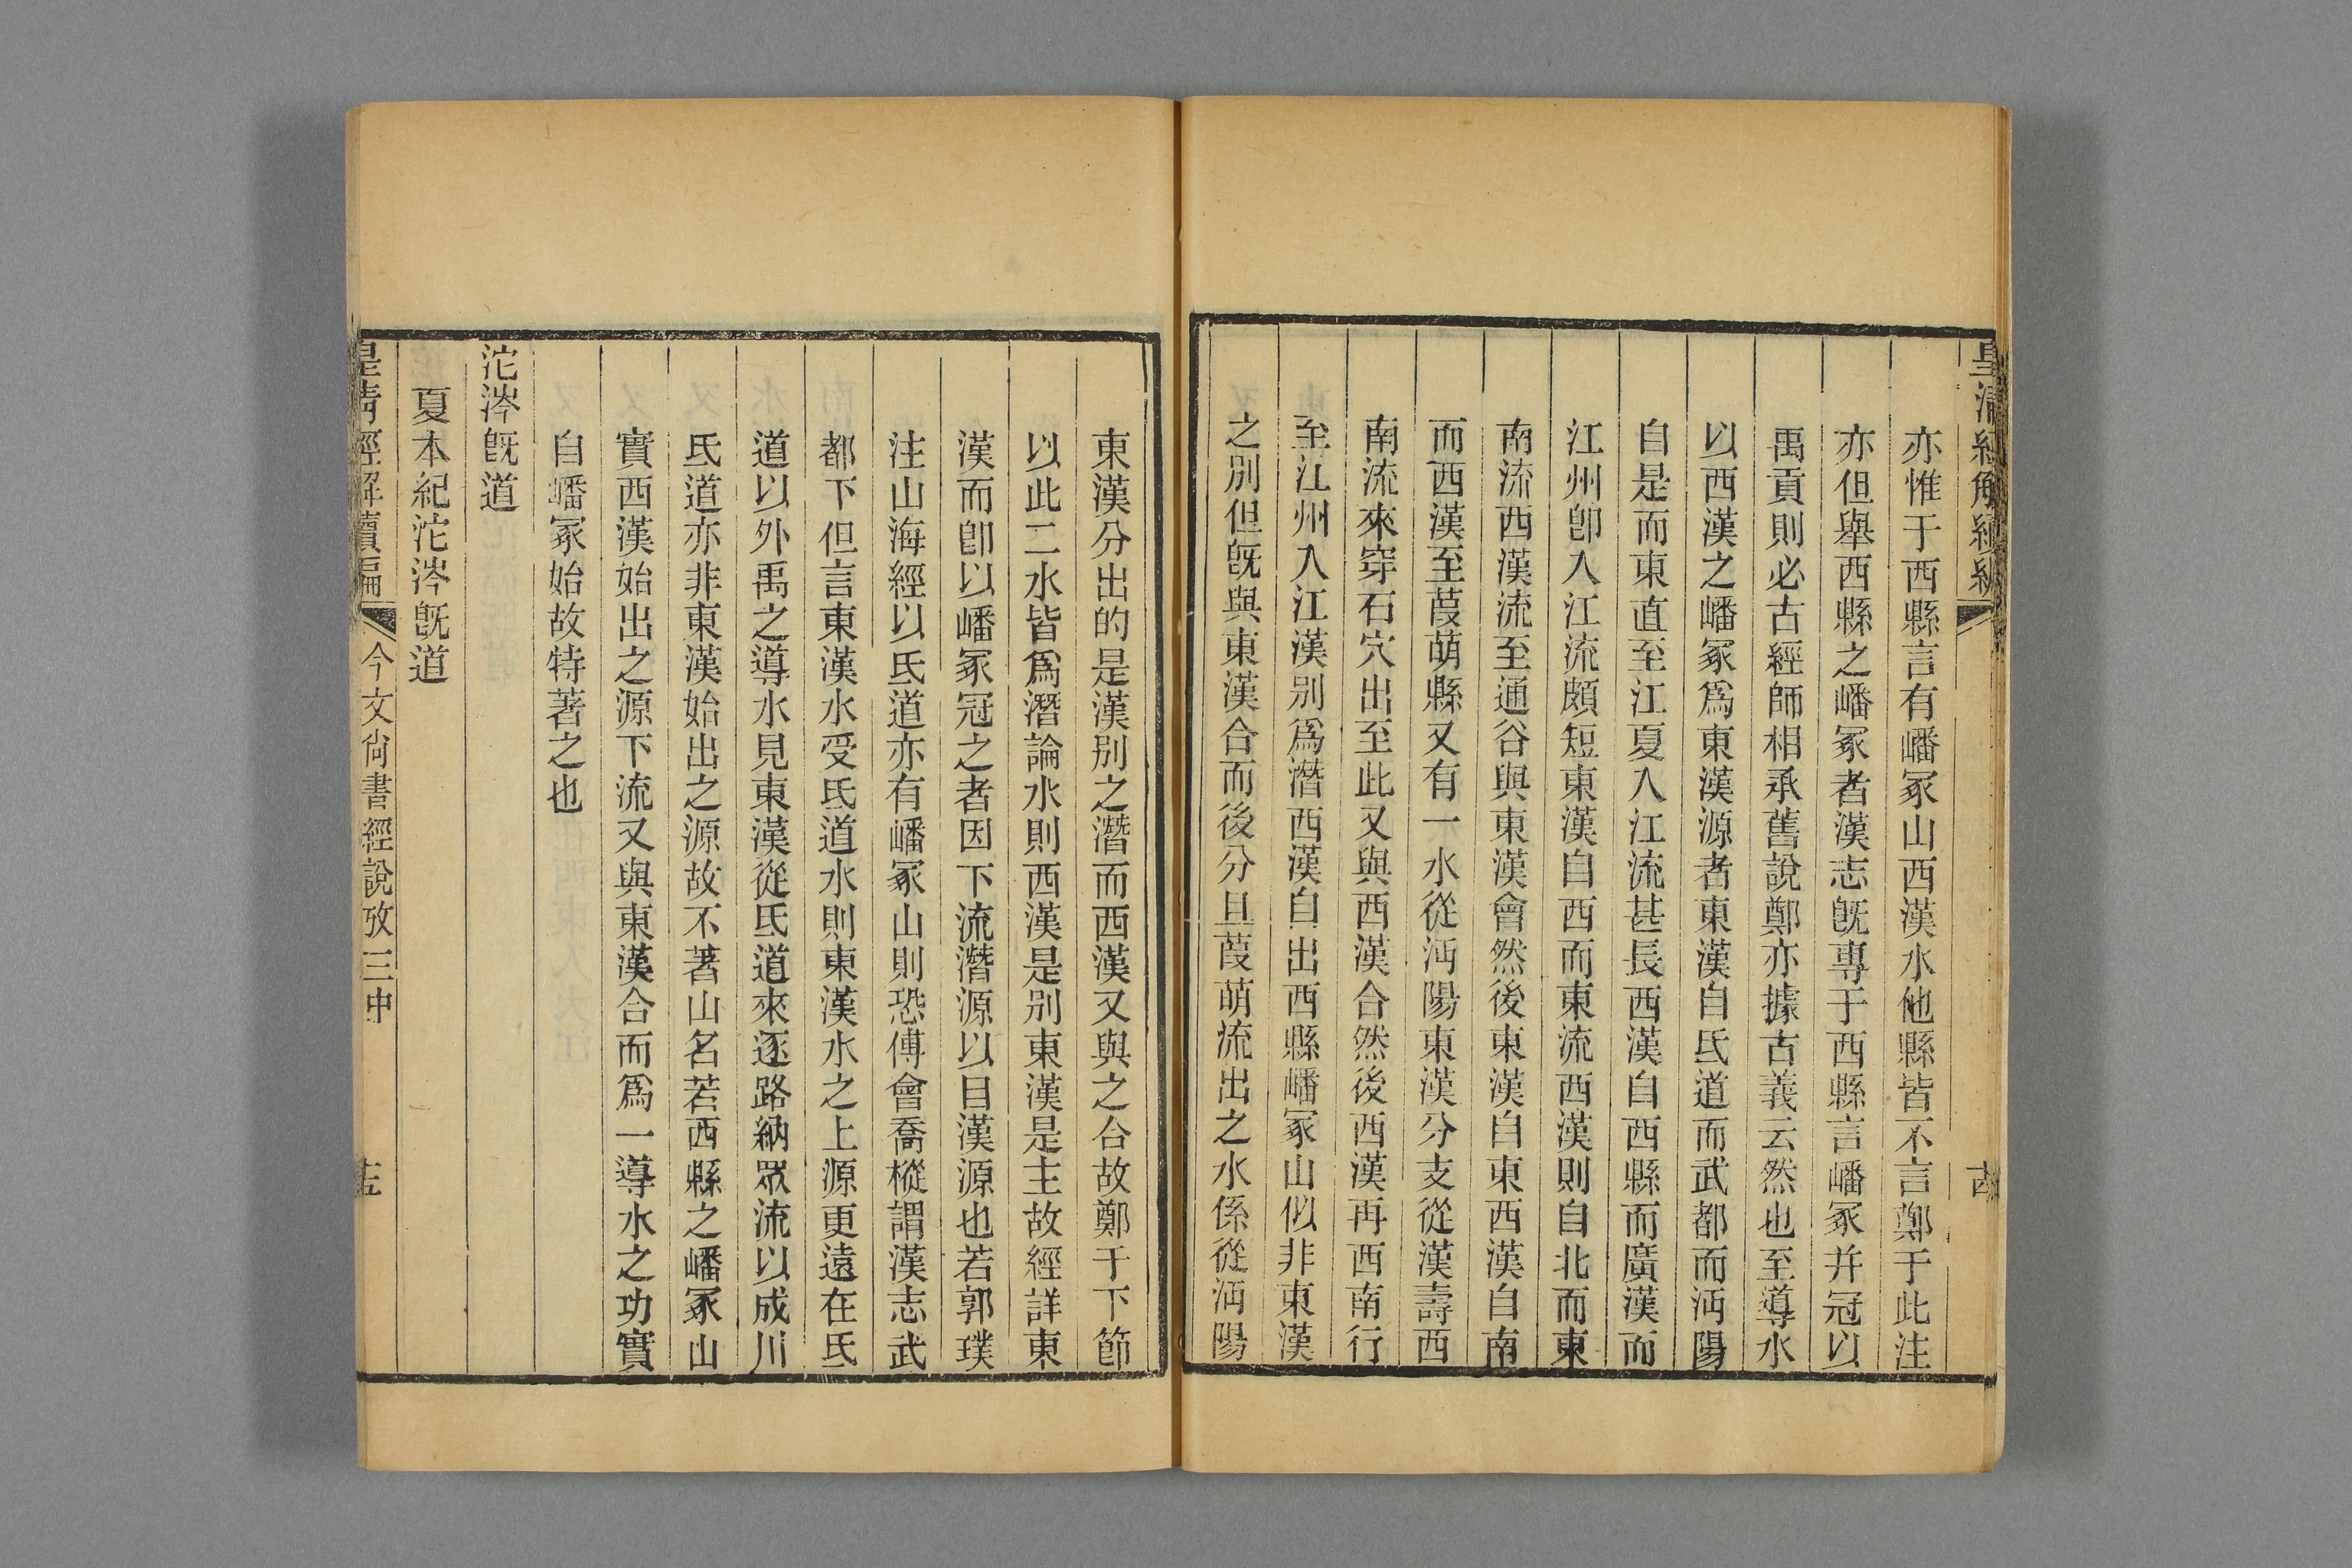 皇清經解續編
古
亦惟于西縣言有嶓冢山西漢水他縣皆不言鄭于此注
亦但舉西縣之嶓冢者漢志旣專于西縣言嶓冢并冠以
禹貢則必古經師相承舊說鄭亦據古義云然也至導水
以西漢之嶓冢爲東漢源者東漢自氐道而武都而沔陽
自是而東直至江夏入江流甚長西漢自西縣而廣漢而
江州卽入江流頗短東漢自西而東流西漢則自北而東
南流西漢流至通谷與東漢會然後東漢自東西漢自南
而西漢至葭萌縣又有一水從沔陽東漢分支從漢壽西
南流來穿石穴出至此又與西漢合然後西漢再西南行
至江州入江漢别爲潛西漢自出西縣嶓冢山似非東漢
之别但旣與東漢合而後分且葭萌流出之水係從沔陽
東漢分出的是漢别之潛而西漢又與之合故鄭于下節
以此二水皆爲潛論水則西漢是别東漢是主故經詳東
漢而卽以嶓冢冠之者因下流潛源以目漢源也若郭璞
注山海經以氐道亦有嶓冢山則恐傅會喬樅謂漢志武
都下但言東漢水受氐道水則東漢水之上源更遠在氐
道以外禹之導水見東漢從氐道來逐路納眾流以成川
氐道亦非東漢始出之源故不著山名若西縣之嶓冢山
實西漢始出之源下流又與東漢合而爲一導水之功實
自嶓冢始故特著之也
沱涔旣道
夏本紀沱涔旣道
皇清經解續編
今文尙書經說攷三中